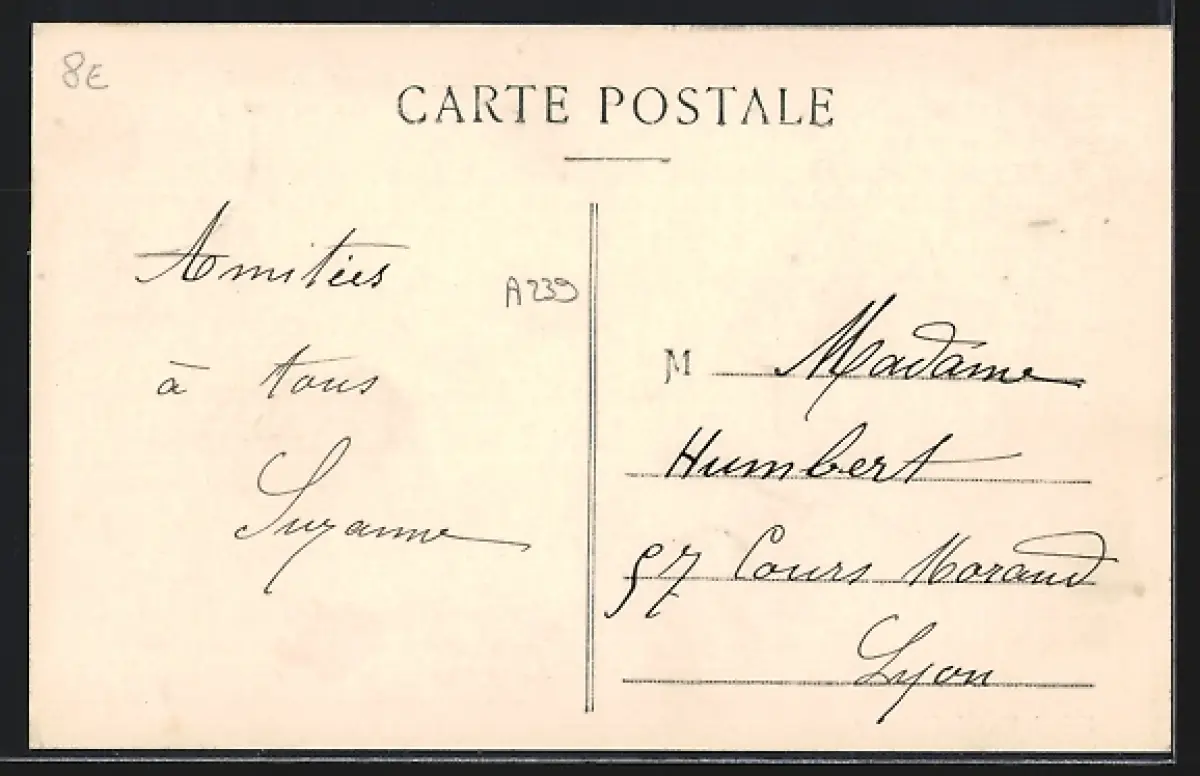 8E
CARTE POSTALE
Amitiés
à tous
Suzanne
A239
M Madame
Humbert
57 Cours Morand
Lyon